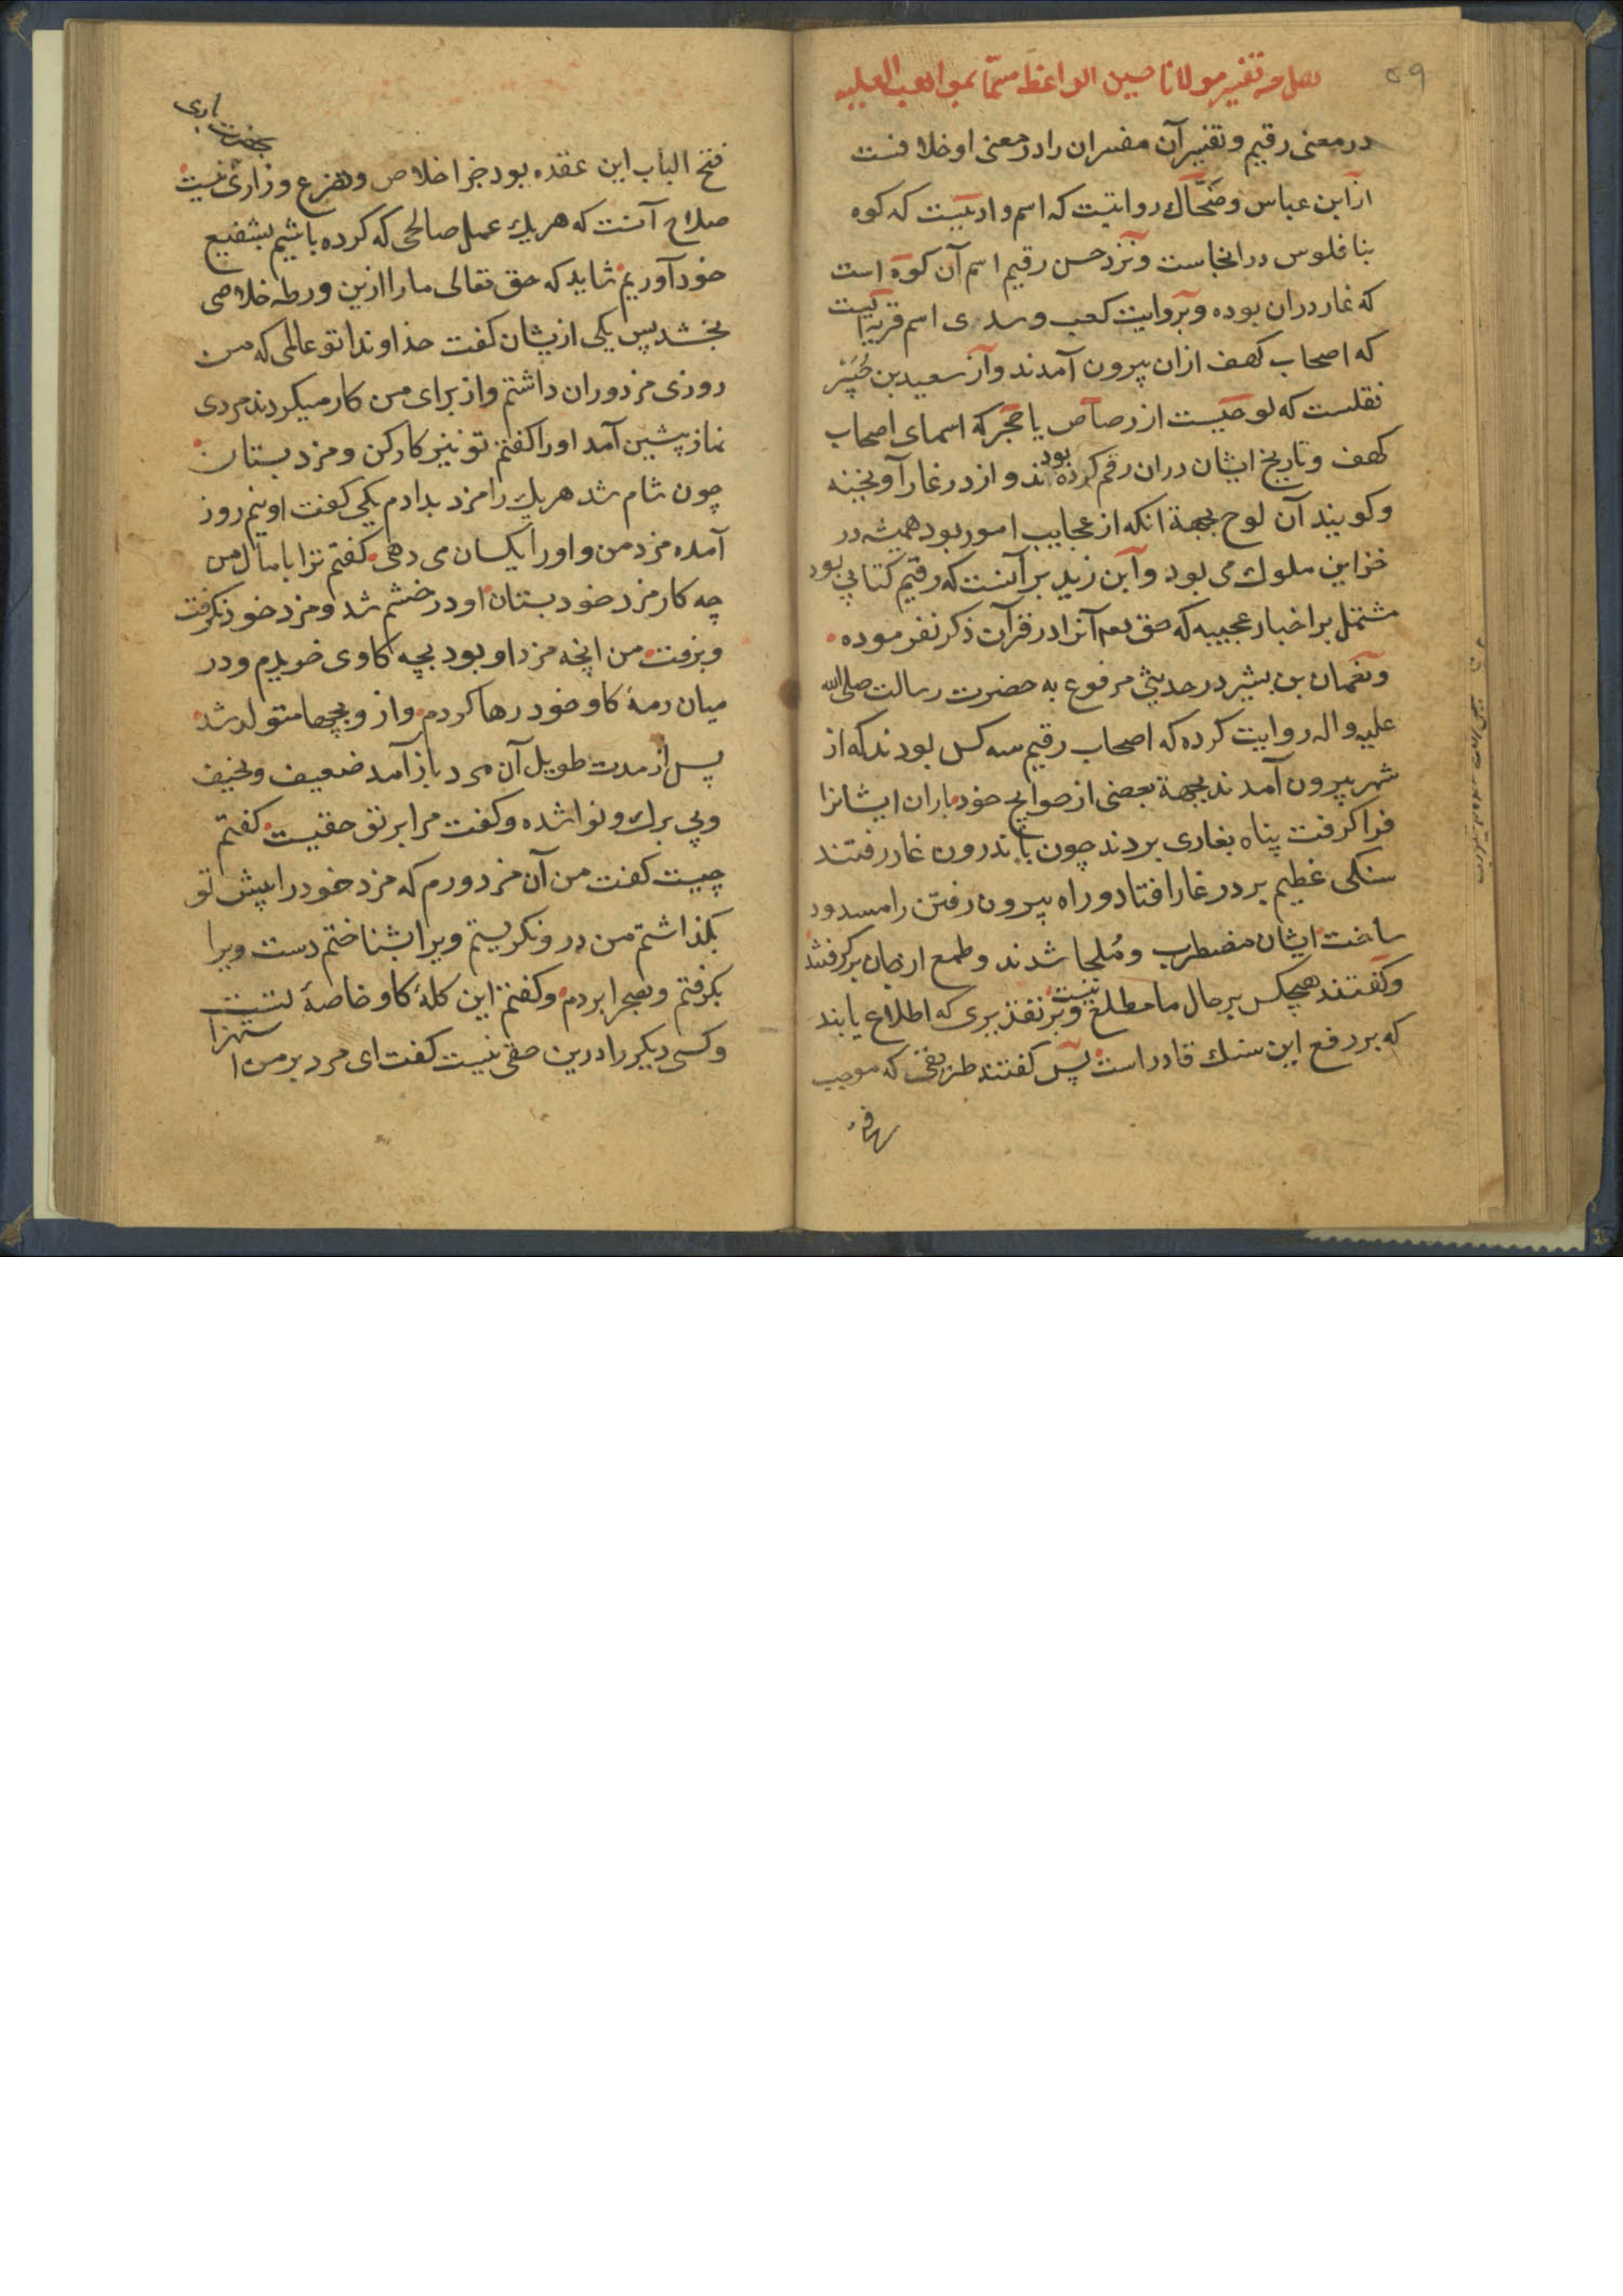 ۵۹
نقل من تفسیر مولانا حسین الواعظ مسمّا بمواهب العلیه
در معنی رقیم و تفسیر آن مفسران را در معنی او خلافست
از ابن عباس و ضحّاك روایتست که اسم وادییست که کوه
بنافلوس در انجاست و نزد حسن رقیم اسم آن کوه است
که غار دران بوده و بروایت کعب و سدی اسم قریه ایست
که اصحاب کهف ازان بیرون آمدند و از سعید بن جُبَیْر
نقلست که لوحیست از رصاص یا حجر که اسمای اصحاب
کهف و تاریخ ایشان دران رقم کرده بودند و از در غار آویخته
و کویند آن لوح بجهة انکه از عجایب امور بود همیشه در
خزاین ملوك می بود و ابن زید بر آنست که رقیم کتابی بود
مشتمل بر اخبار عجیبه که حق تعم آنرا در قرآن ذکر نفرموده
و نعمان بن بشیر در حدیثی مرفوع به حضرت رسالت صلی الله
علیه و اله روایت کرده که اصحاب رقیم سه کس بودند که از
شهر بیرون آمدند بجهة بعضی از حوایج خود باران ایشانرا
فرا کرفت پناه بغاری بردند چون باندرون غار رفتند
سنکی عظیم بر در غار افتاد و راه بیرون رفتن را مسدود
ساخت ایشان مضطرب و مُلجا شدند و طمع ازجان برکرفتند
و کفتند هیچکس بر حال ما مطلع نیست و بر تقدیری که اطلاع یابند
که بر رفع این سنك قادر است پس کفتند طریقی که موجب
فتح الباب این عقده بود جز اخلاص و تضرع و زاری نیست
بحضرت باری
صلاح آنست که هریك عمل صالحی که کرده باشیم بشفیع
خود آوریم شاید که حق تعالی ما را ازین ورطه خلاصی
بخشد پس یکی از یشان کفت خداوندا تو عالمی که من
روزی مزدوران داشتم و از برای من کار میکردند مردی
نماز پشین آمد او را کفتم تو نیز کار کن و مزد بستان
چون شام شد هریك را مزد بدادم یکی کفت او نیم روز
آمده مزد من و او را یکسان می دهی کفتم ترا با مال من
چه کار مزد خود بستان او در خشم شد و مزد خود نکرفت
و برفت من انچه مزد او بود بچه کاوی خریدم و در
میان رمهٔ کاو خود رها کردم و از و بچها متولد شد
پس از مدت طویل آن مرد باز آمد ضعیف و نحیف
و بی برك و نوا شده و کفت مرا بر تو حقیست کفتم
چیست کفت من آن مزدورم که مزد خود را پیش تو
بکذاشتم من در و نکریستم ویرا بشناختم دست ویرا
بکرفتم و بصحرا بردم و کفتم این کلهٔ کاو خاصهٔ تست
و کسی دیکر را درین حقی نیست کفت ای مرد بر من استهزا